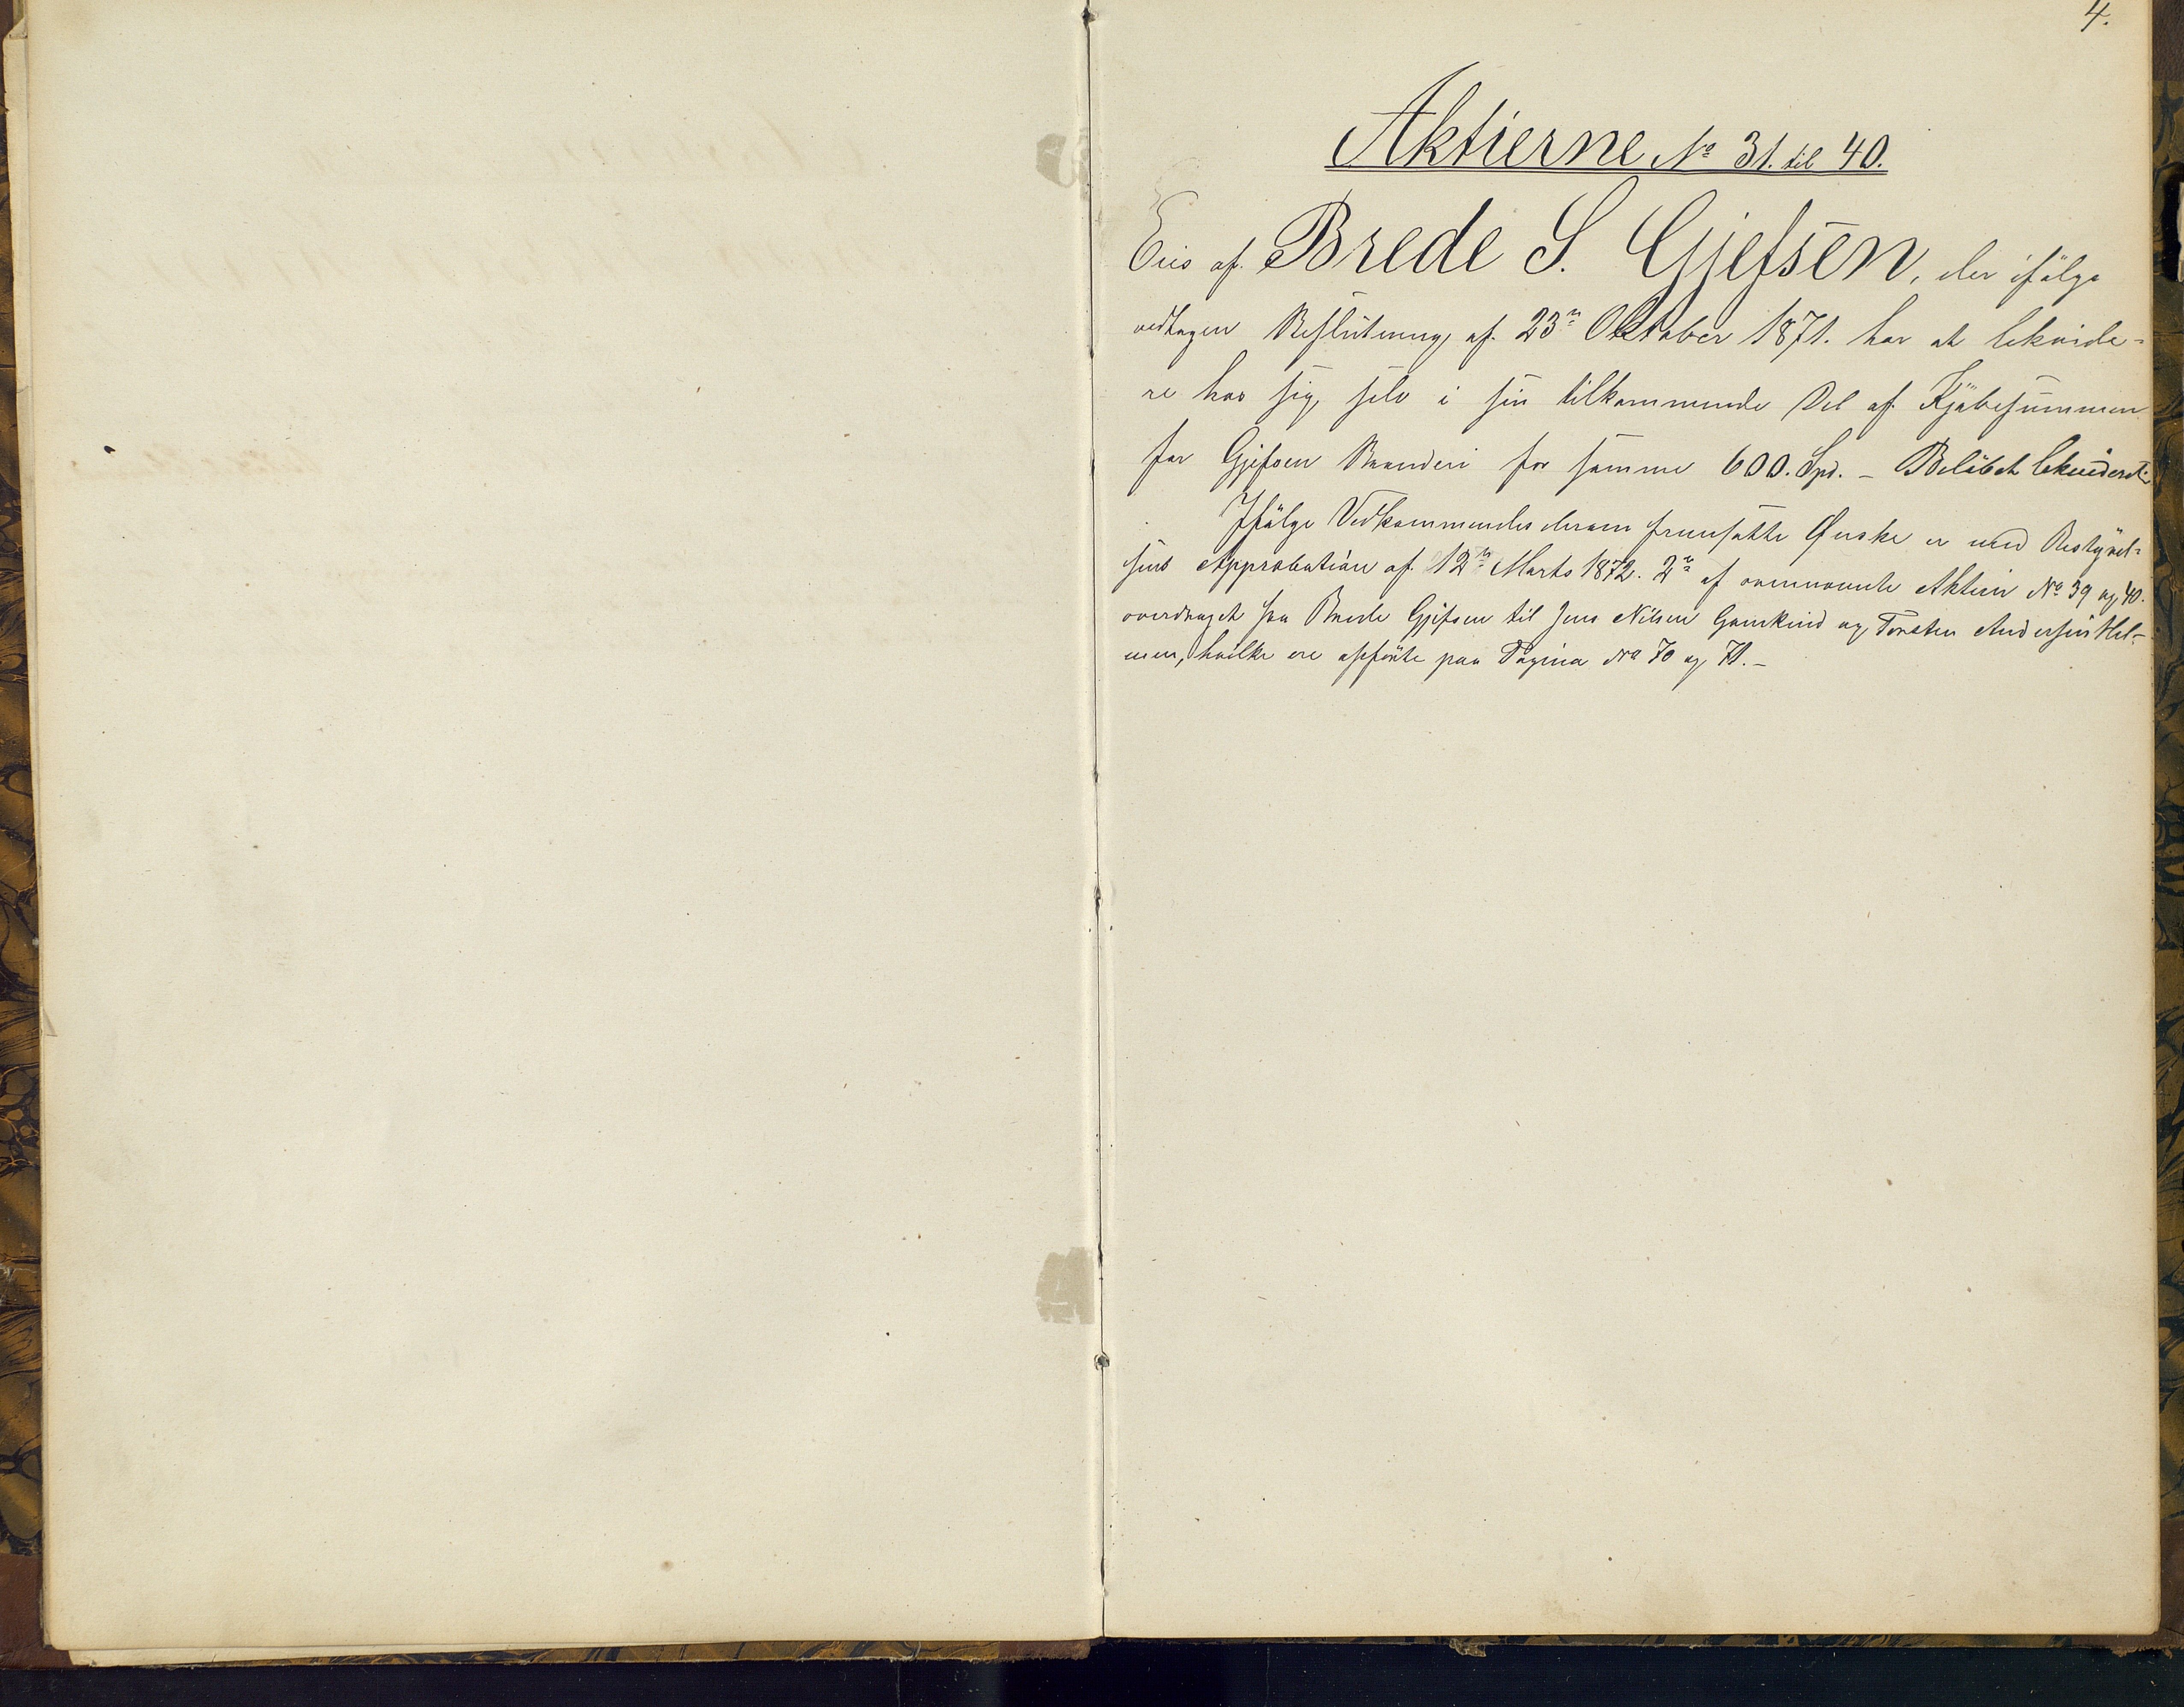 4.
Aktierne No 31. til 40.
Eies af Brede S. Gjefsen, der ifølge
vedtagen Beslutning af 23de Oktober 1871. har at likvide-
re hos sig selv i sin tilkommende Del af Kjøbesummen
for Gjefsen Brænderi for samme 600. Spd. – Beløbet likvideret.
Ifølge Vedkommendes derom fremsatte Ønske er med Bestyrel-
sens Approbation af 12te Marts 1872. 2de af ovennævnte Aktier No 39 og 40.
overdraget fra Brede Gjefsen til Jens Nilsen Gamkind og Torsten Andersen Hol-
men, hvilke ere opførte paa Pagina No 70 og 71. –